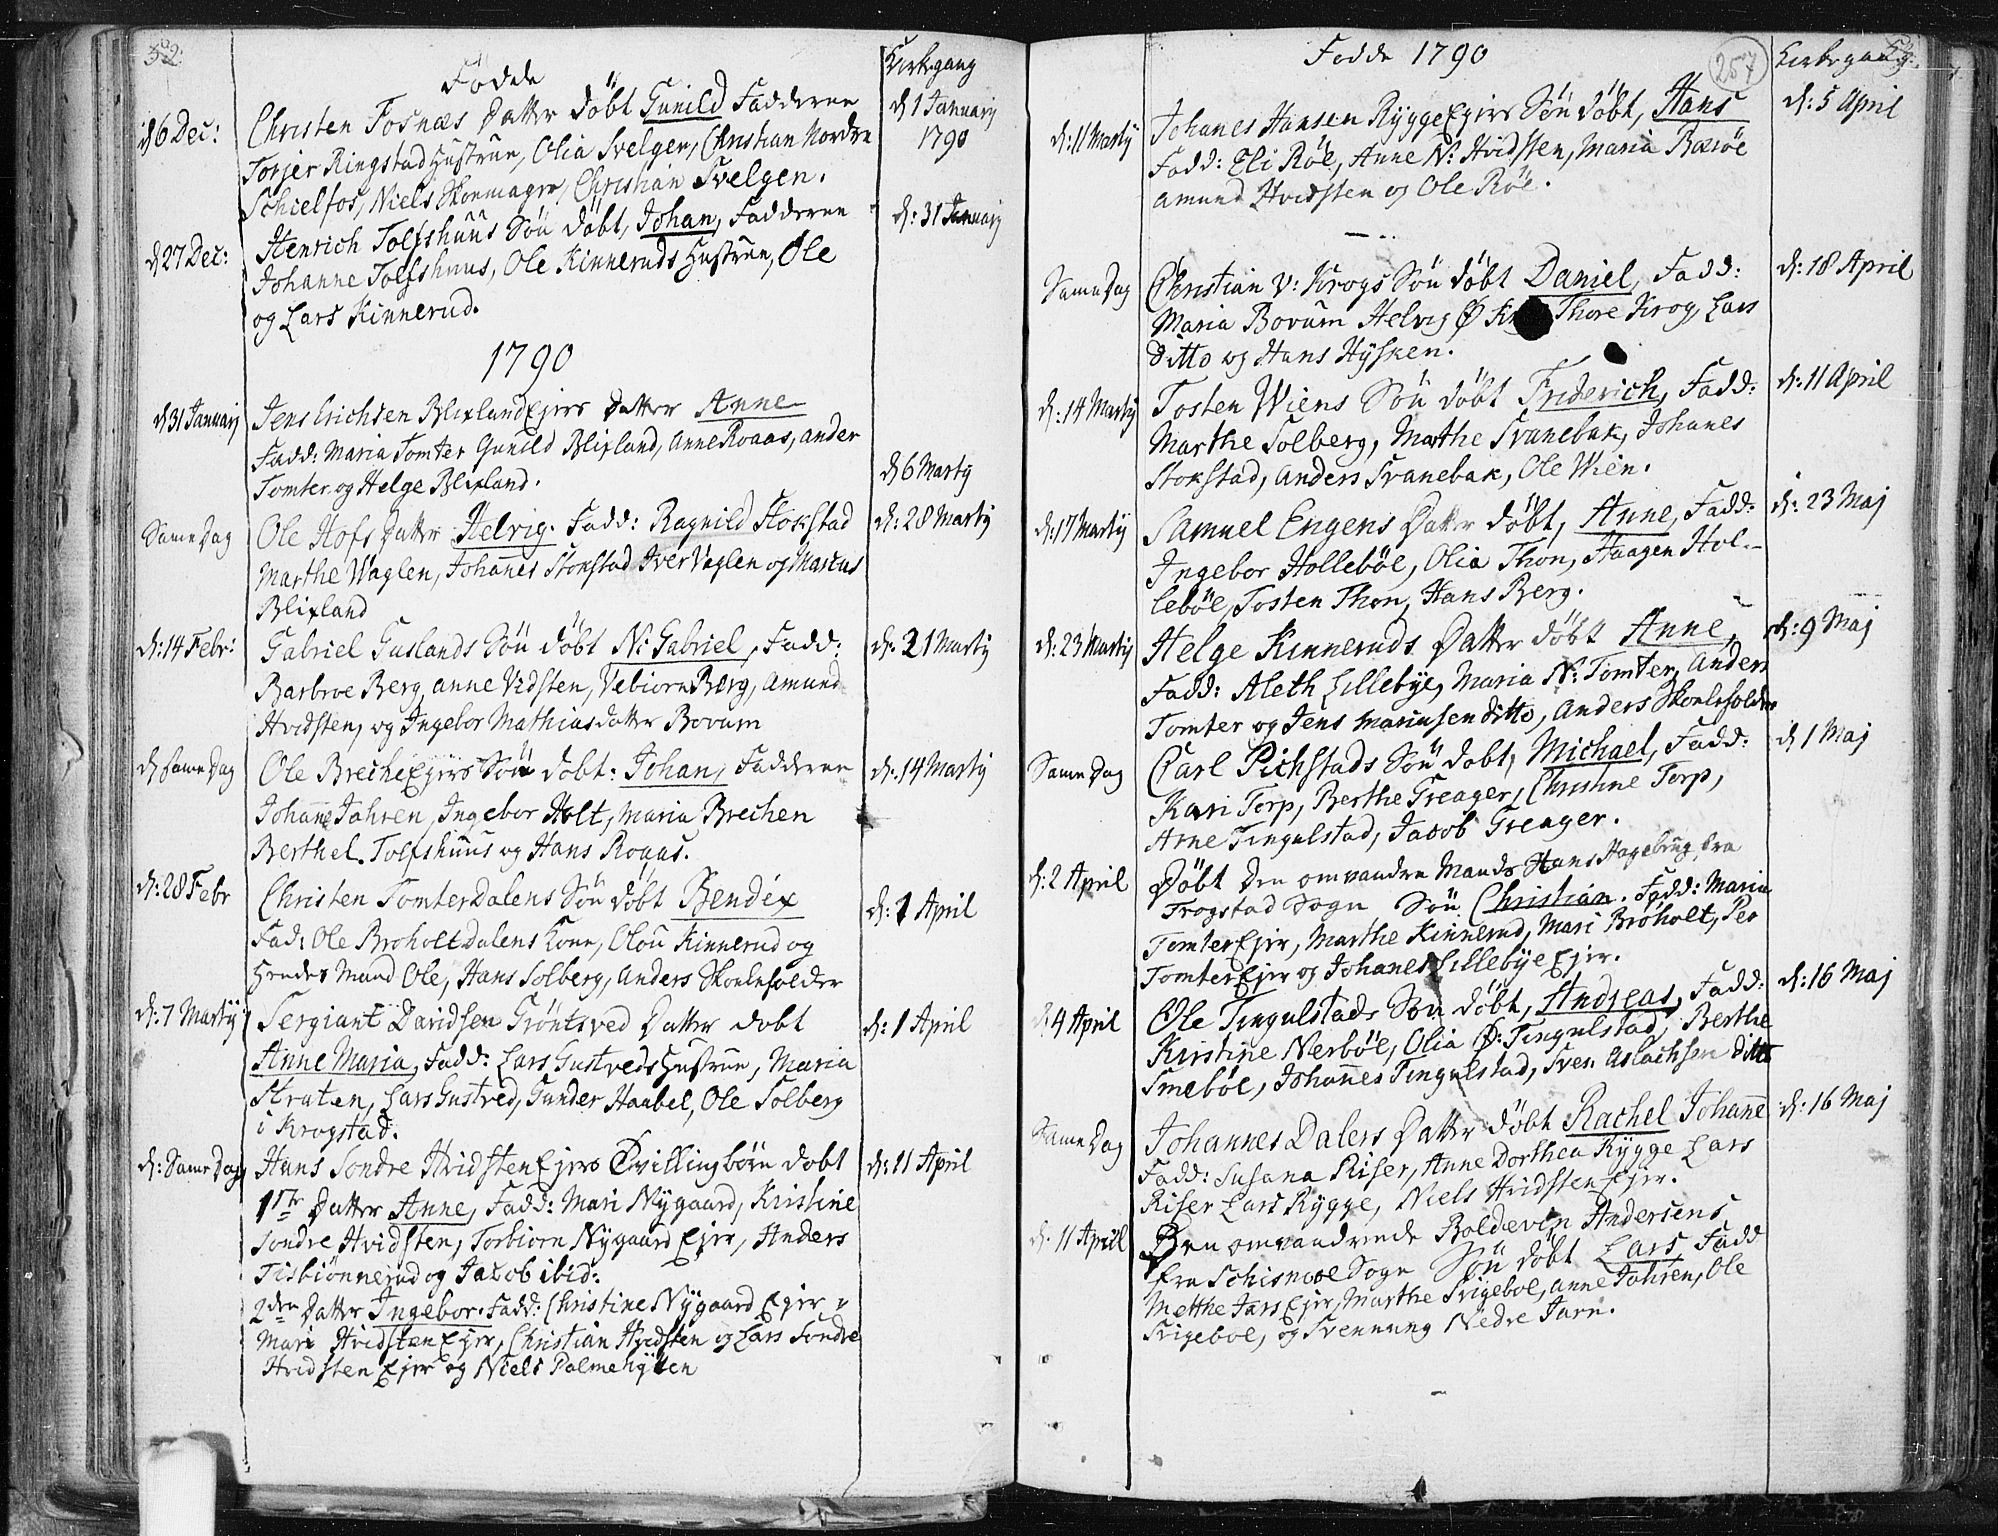 52.
Födde
Kirkegang
d 6 Dec:
Christen Fosnæs Datter döbt Gunild Fadderne
d 1 Januarij
1790
Torjer Ringstad Hustrue, Olia Svelgen, Christian Nordre
Schielfos, Niels Skoemager, Christian Svelgen.
d 27 Dec:
Henrich Tolfshuus Sön döbt, Johan, Fadderne
d: 31 Januarij
Johanne Tolfshuus, Ole Kinneruds Hustrue, Ole
og Lars Kinnerud.
1790
d 31 Januarij
Jens Erichsen BlixlandEjers Datter Anne
Fadd: Maria Tomter Gunild Blixland, Anne Roaas, Ander
d 6 Marty
Tomter og Helge Blixland.
Same Dag
Ole Hofs Datter Helvig. Fadd: Ragnild Stokstad
d: 28 Martij
Marthe Waglen, Johanes Stokstad Iver Vaglen og Marcus
Blixland
d: 14 Febr:
Gabriel Guslands Sön döbt N: Gabriel, Fadd:
d: 21 Martij
Barbroe Berg, Anne Vidsten, Vebiorn Berg, Amund
Hvidsten, og Ingebor Mathiasdatter Bovum
d Same Dag
Ole BrecheEjers Sön döbt: Johan, Fadderne
d: 14 Martij
Johane Jahren, Ingebor Holt, Maria Brechen
Berthel Tolfshuus og Hans Roaas.
d: 28 Febr
Christen TomterDalens Sön döbt Bendix
d: 1 April
Fad: Ole BroholtDalens Kone, Olou Kinnerud og
Hendes Mand Ole, Hans Solberg, Anders Skoleholder
d: 7 Martij
Sergiant Davidsen Gröntsved Datter dobt
d: 1 April
Anne Maria, Fadd: Lars Gustveds Hustrue, Maria
Straten, Lars Gustved, Gunder Haabel, Ole Solberg
i Krogstad.
d: Same Dag
Hans Sondre HvidstenEjers Tvillingbörn dobt
d: 11 April
1ste Datter Anne, Fadd: Mari Nygaard, Kristine
Sondre Hvidsten, Torbiorn Nygaard Ejer, Anders
Tisbiönnerud og Jacob ibid:
2den Datter Ingebor. Fadd: Christine Nygaard Ejer
Mari HvidstenEjer, Christian Hvidsten og Lars Sondre
Hvidsten Ejer og Niels Palmehytten
Fodde 1790
257
Kirkegang
d: 11 Martij
Johanes Hansen RyggeEjers Sön döbt, Hans
d: 5 April
Fadd: Eli Röe, Anne N: Hvidsten, Maria Bæröe
Amund Hvidsten og Ole Röe.
Same Dag
Christian V: Krogs Sön döbt Daniel, Fadd:
d: 18 April
Maria Bovum Helvig Ø Thore Krog, Lars
ditto og Hans Hysken.
d: 14 Martij
Tosten Wiens Sön döbt Friderich, Fadd:
d: 11 April
Marthe Solberg, Mathe Svanebak, Johanes
Stokstad, Anders Svanebak, Ole Wien.
d: 17 Martij
Samuel Engens Datter döbt, Anne, Fadd:
d: 23 Maj
Ingebor Holleböe, Olia Thon, Haagen Hol-
leböe, Tosten Thon, Hans Berg.
d: 23 Martij
Helge Kinneruds Datter döbt Anne,
d: 9 Maj
Fadd: Aleth Lillebye, Maria N: Tomter, Anders
Tomter og Jens Mariusen ditto, Anders Skoleholder
Same Dag
Carl Pichstads Sön dobt, Michael, Fadd:
d 1 Maj
Kari Torp, Berthe Greager, Christine Torp,
Arne Tingulstad, Jacob Greager.
d: 2 April
Döbt den omvandre Mands Hans Hagebrug fra
Trogstad Sogn Sön Christian. Fadd: Maria
TomterEjer, Marthe Kinnerud, Mari Broholt, Peo
TomterEjer og Johanes LillebyeEjer.
d 4 April
Ole Tingulstads Son döbt, Andreas, Fadd:
d: 16 Maj
Kirstine Nerböe, Olia Ø: Tingulstad, Berthe
Smeböe, Johannes Tingulstad, Sven Aslachsen ditto
Same Dag
Johannes Dalers Datter döbt Rachel Johane
d: 16 Maj
Fadd: Susana Riser, Anne Dorthea Rygge Lars
Riser Lars Rygge, Niels HvidstenEjer.
d. 11 April
Den omvandrende Boldevin Andersens
fra Schisnoe Sogn Sön döbt Lars Fadd
Metthe JarsEjer, Marthe Srigeboe, Anne Jahren, Ole
Srigeboe, og Svennung Nedre Jarn.